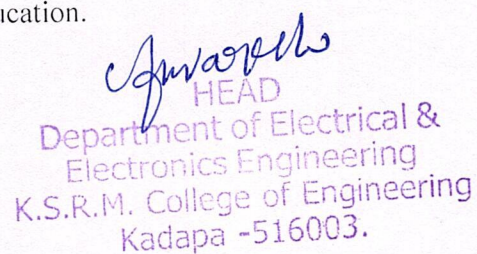 ucation.
HEAD
Department of Electrical &
Electronics Engineering
K.S.R.M. College of Engineering
Kadapa -516003.